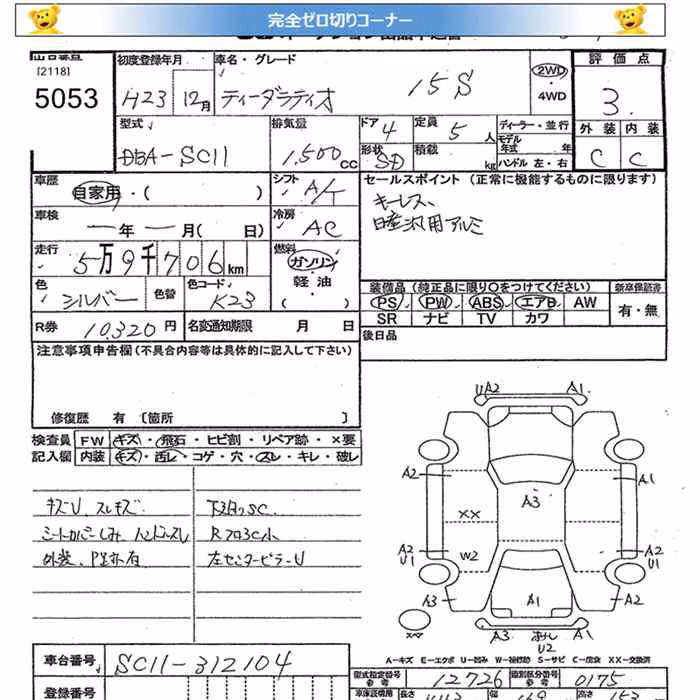 完全ゼロ切りコーナー
[2118]
5053
初度登録年月
H23 12月
車名・グレード
ティーダラティオ 15S
2WD
4WD
評価点
3.
外装 内装
C C
型式
DBA-SC11
排気量
1,500cc
ドア 4
形状 SD
定員 5人
積載 kg
ディーラー・並行
モデル年式 年
ハンドル 左・右
車歴
自家用・( )
シフト A/T
車検
年 月( 日)
冷房 AC
走行
5万9千706km
燃料
ガソリン
軽油
( )
色 シルバー
色替
色コード K23
R券 10,320円
名変通知期限 月 日
セールスポイント (正常に機能するものに限ります)
キーレス
日産汎用アルミ
装備品(純正品に限り○をつけてください)
PS PW ABS エアB AW
SR ナビ TV カワ
新車保証書
有・無
後日品
注意事項申告欄(不具合内容等は具体的に記入して下さい)
修復歴 有 [箇所 ]
検査員 FW キズ・飛石・ヒビ割・リペア跡・×要
記入欄 内装 キズ・汚レ・コゲ・穴・スレ・キレ・破レ
キズU、スレキズ
シートカバーしみ ハンドルスレ
下廻りSC
Rフロア3C小
左センターピラーU
UA2 A1
A2 A1
A3
XX
A2
U1
W2
A2
U1
A3 A1 A2
スペア
A3 A1
U2
A-キズ E-エクボ U-凹み W-補修跡 S-サビ C-腐食 XX-交換済
車台番号 SC11-312104
登録番号
型式指定番号 12726
類別区分番号 0175